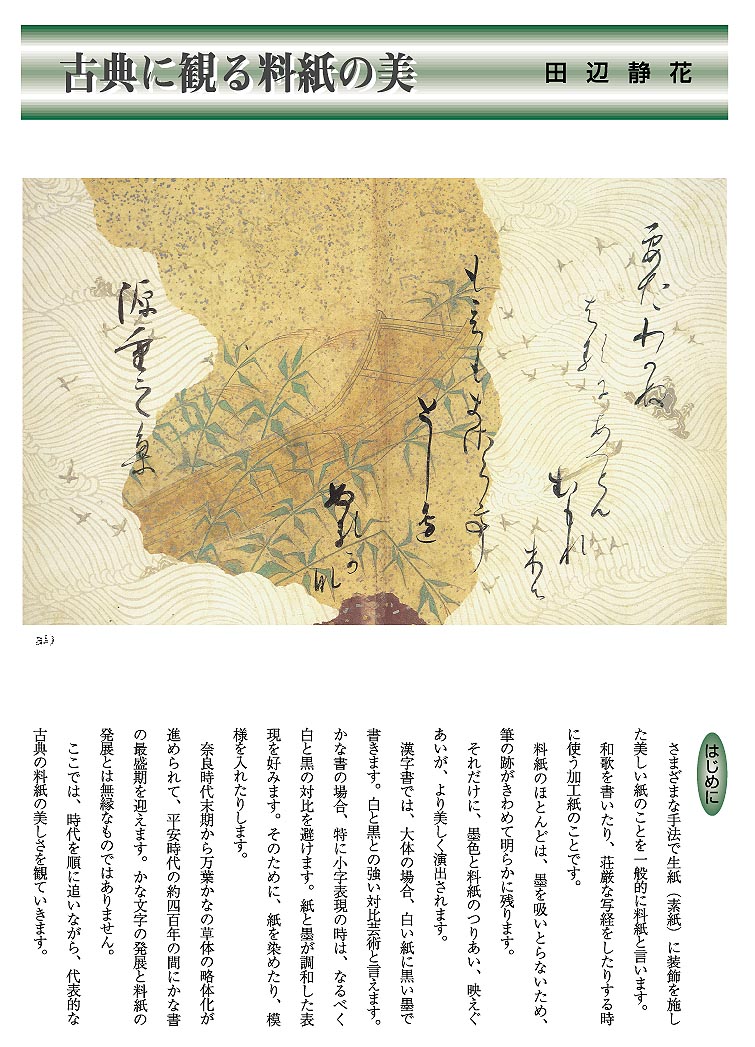 古典に観る料紙の美
田辺静花
源重之集
はじめに
さまざまな手法で生紙（素紙）に装飾を施し
た美しい紙のことを一般的に料紙と言います。
和歌を書いたり、荘厳な写経をしたりする時
に使う加工紙のことです。
料紙のほとんどは、墨を吸いとらないため、
筆の跡がきわめて明らかに残ります。
それだけに、墨色と料紙のつりあい、映えぐ
あいが、より美しく演出されます。
漢字書では、大体の場合、白い紙に黒い墨で
書きます。白と黒との強い対比芸術と言えます。
かな書の場合、特に小字表現の時は、なるべく
白と黒の対比を避けます。紙と墨が調和した表
現を好みます。そのために、紙を染めたり、模
様を入れたりします。
奈良時代末期から万葉かなの草体の略体化が
進められて、平安時代の約四百年の間にかな書
の最盛期を迎えます。かな文字の発展と料紙の
発展とは無縁なものではありません。
ここでは、時代を順に追いながら、代表的な
古典の料紙の美しさを観ていきます。